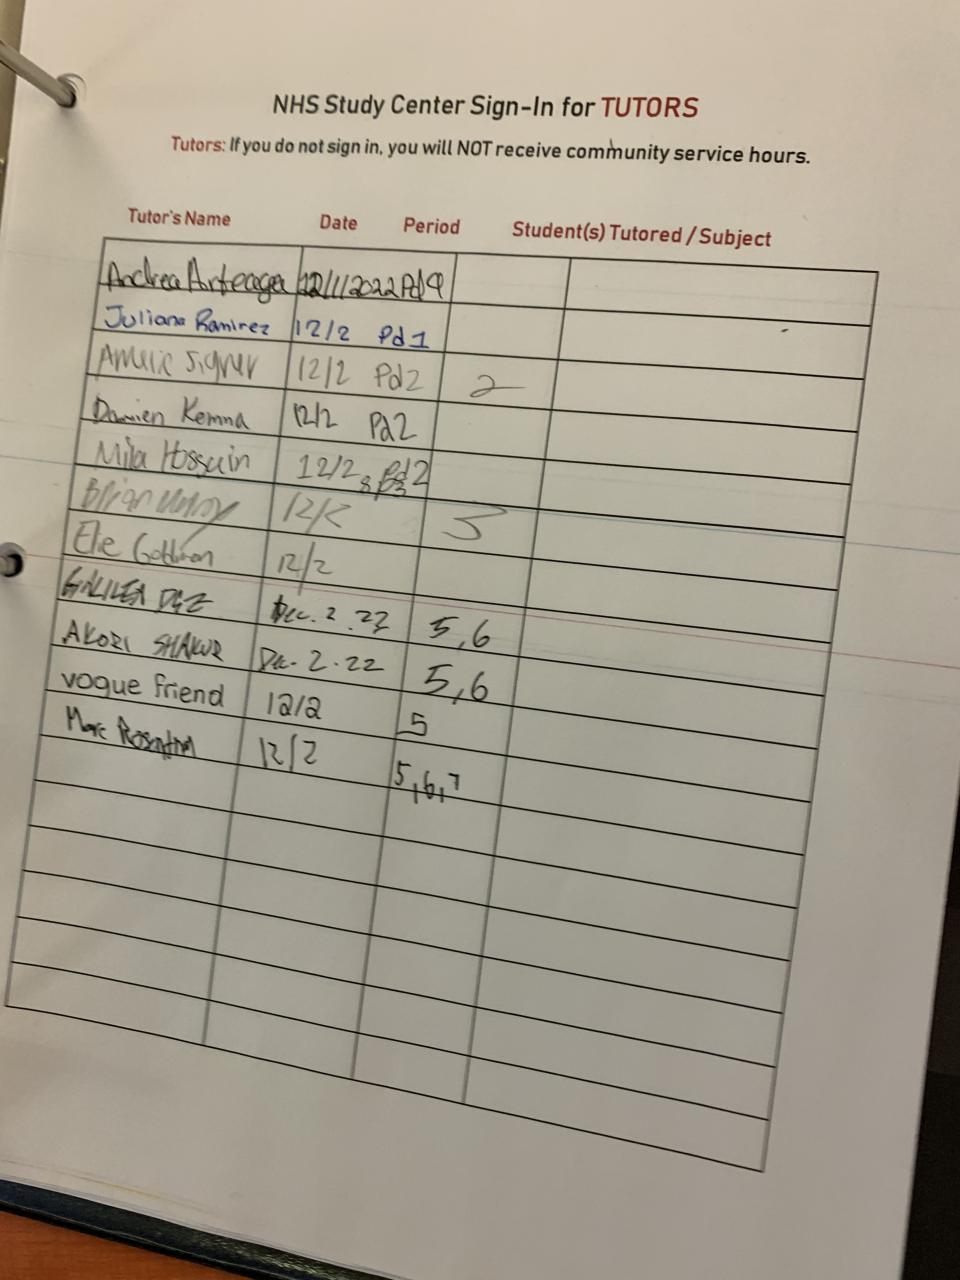 NHS Study Center Sign-In for TUTORS
Tutors: If you do not sign in, you will NOT receive community service hours.
Tutor's Name Date Period Student(s) Tutored / Subject
Andrea Arteaga 12/1/2022 Pd 9
Juliana Ramirez 12/2 Pd 1
Signer 12/2 Pd2 2
Damien Kemna 12/2 Pd2
Mila Hossain 12/2 Pd2
Brian 12/2 5
Elie Gottman 12/2
GALILEA DEC. 2. 5,6
AKORI SHAKUR Dec. 2. 22 5,6
vogue friend 12/2 5
Marc Rosenthal 12/2 5,6,7